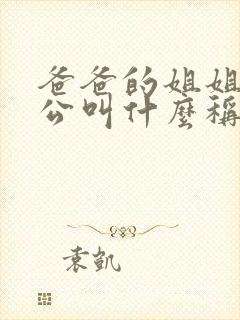 爸爸的姐姐
公叫什麼稱
袁凱